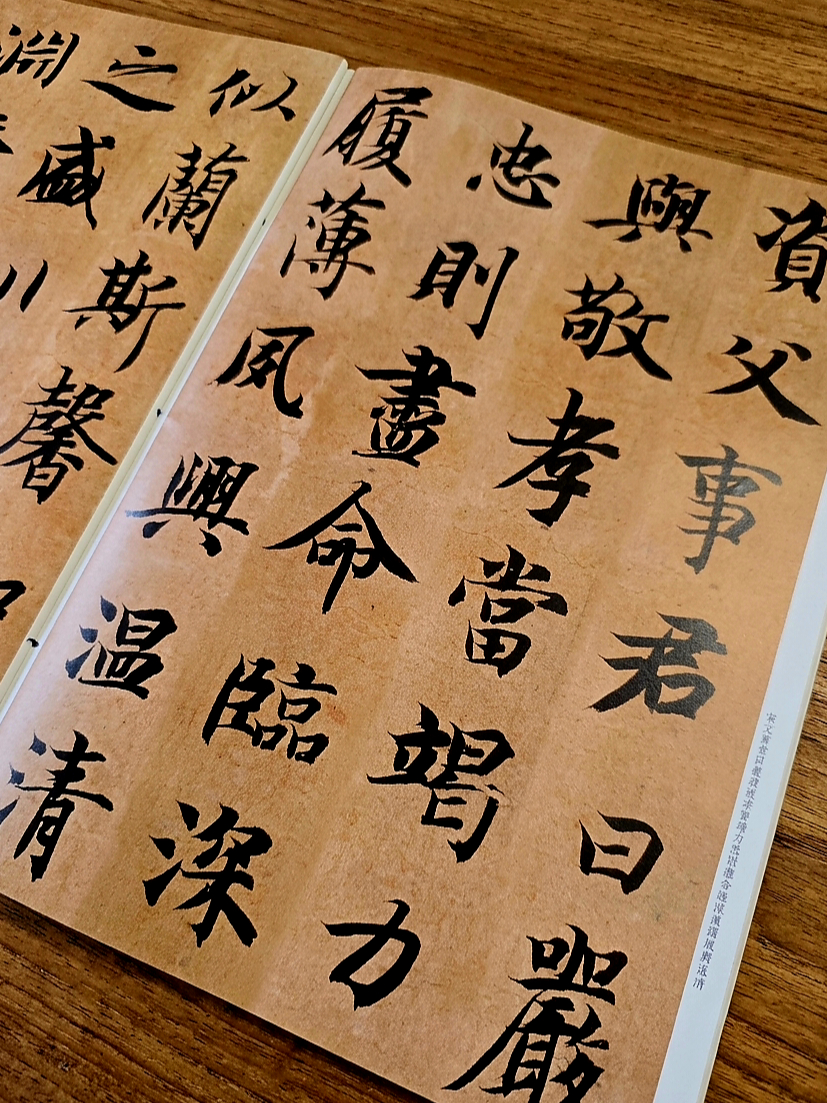 資父事君曰嚴
與敬孝當竭力
忠則盡命臨深
履薄夙興温清
似蘭斯馨
之盛川
淵